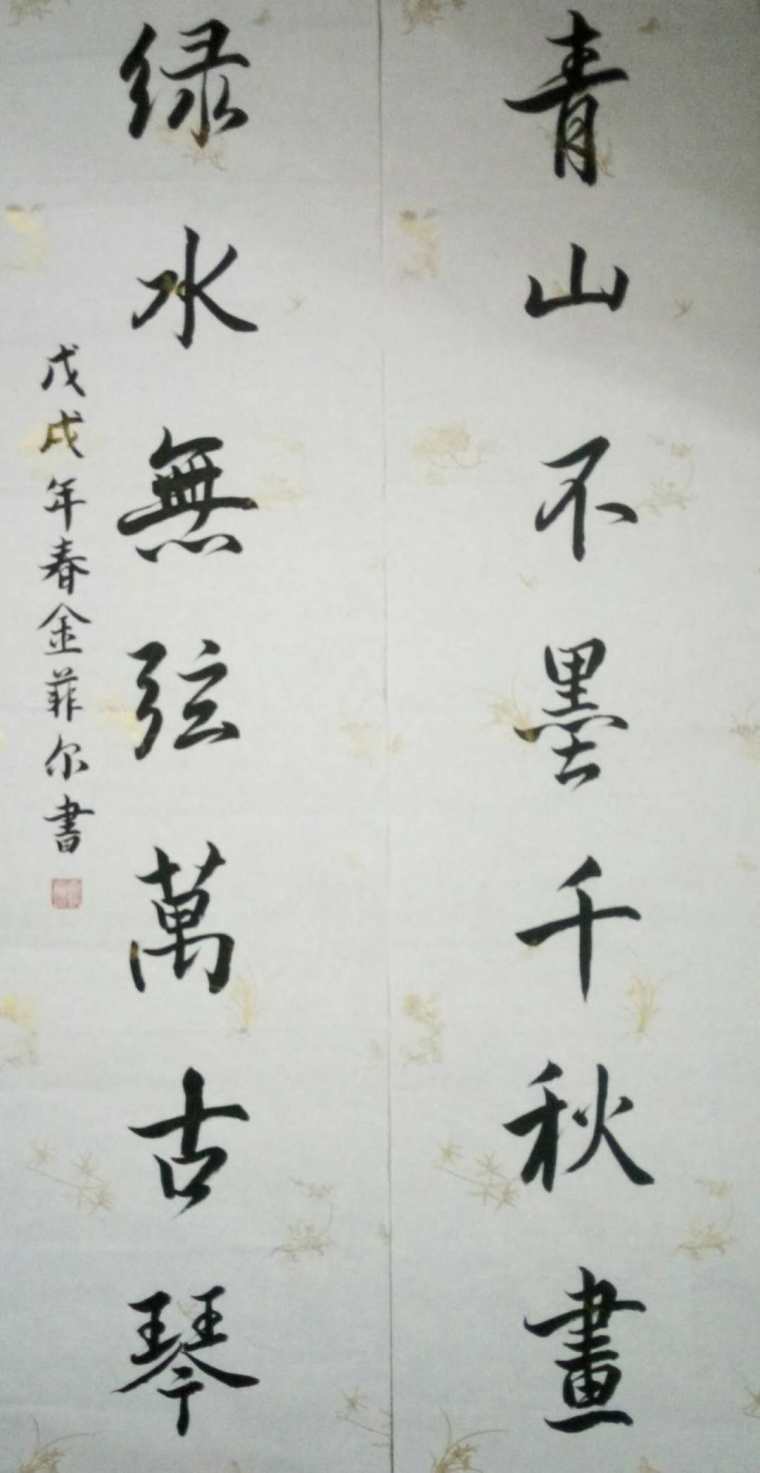 青山不墨千秋畫
绿水無弦萬古琴
戊戌年春金菲尔書